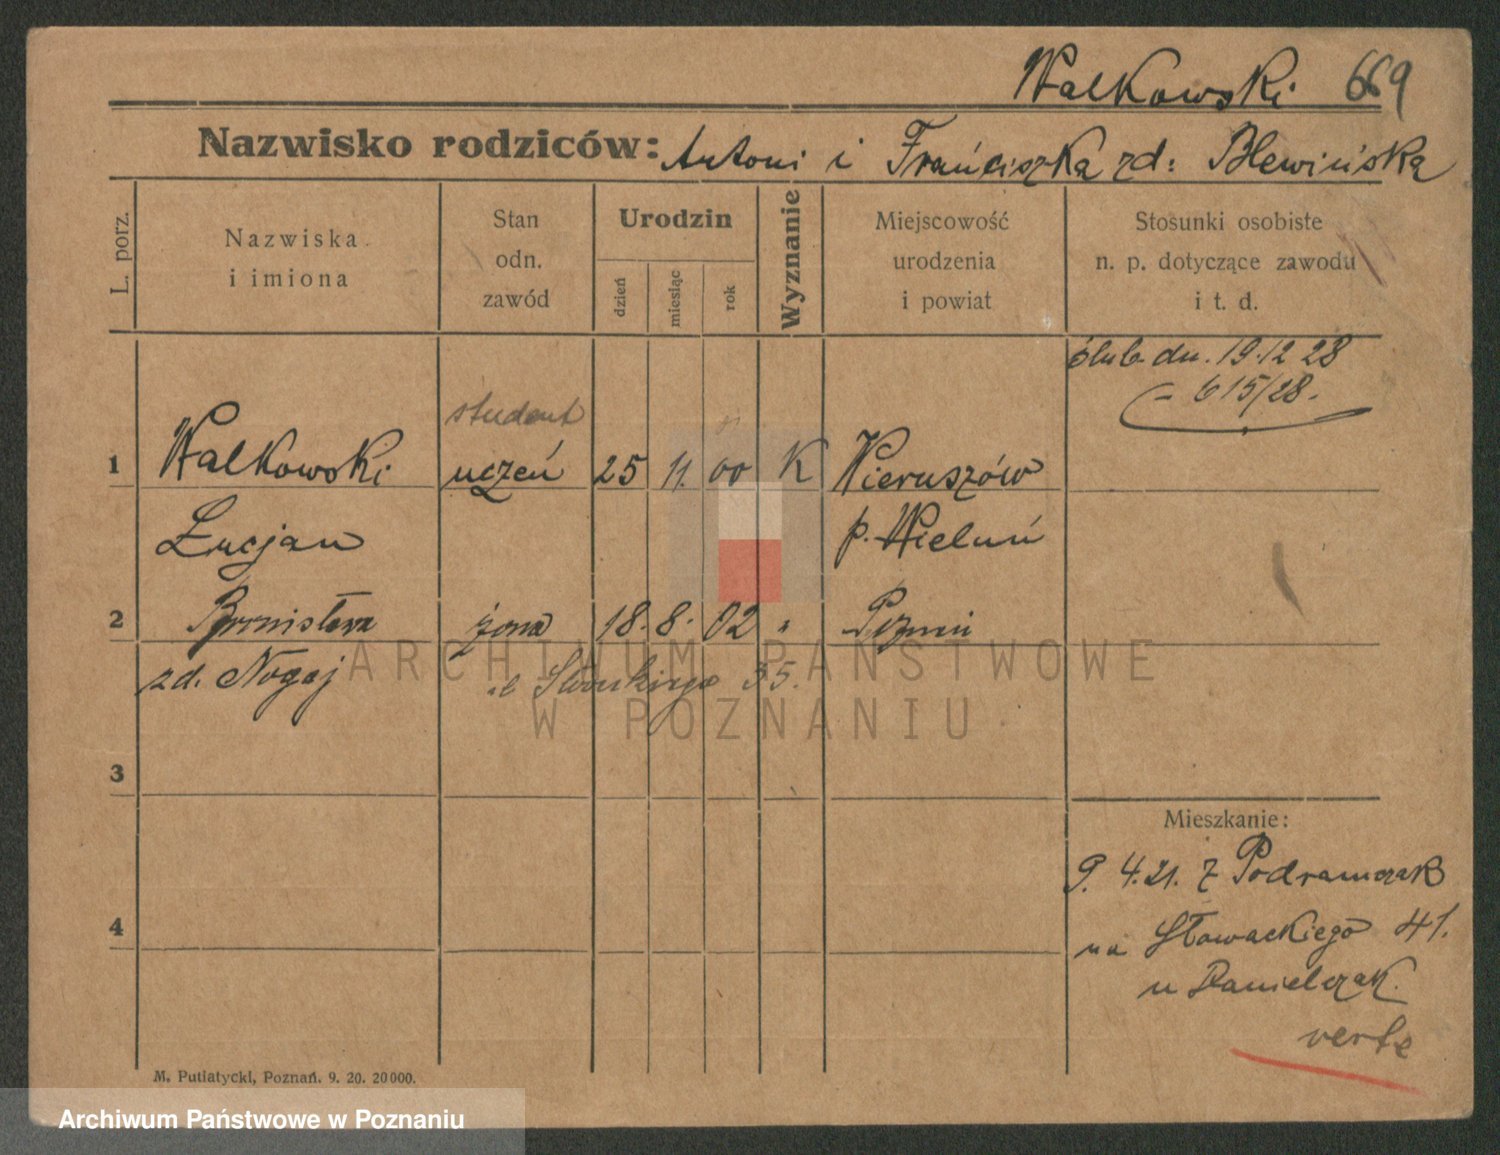 Walkowski 669
Nazwisko rodziców: Antoni i Franciszka zd: Blewińska
L. porz.
Nazwiska i imiona
Stan odn. zawód
Urodzin
dzień
miesiąc
rok
Wyznanie
Miejscowość urodzenia i powiat
Stosunki osobiste n. p. dotyczące zawodu i t. d.
ślub dn. 19.12 28
615/28.
student
1 Walkowski uczeń 25 11. 00 K Wieruszów
Łucjan p. Wieluń
2 Bronisława żona 18. 8. 02 " Poznań
zd. Nogaj ul Słowackiego 35.
ARCHIWUM PAŃSTWOWE
W POZNANIU
3
4
Mieszkanie:
P. 4.21. z Podramczak
na Słowackiego 41.
u Danielczak.
verte
M. Putiatycki, Poznań. 9. 20. 20000.
Archiwum Państwowe w Poznaniu